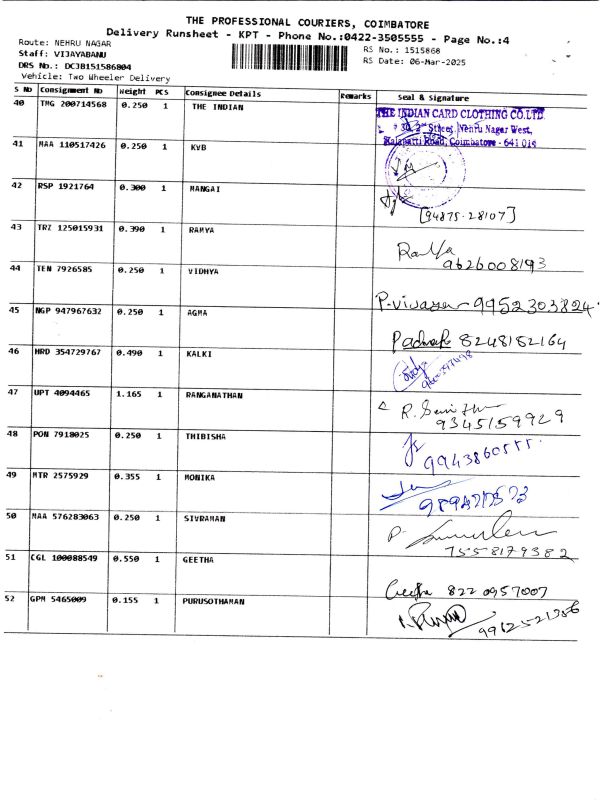 THE PROFESSIONAL COURIERS, COIMBATORE
Delivery Runsheet - KPT - Phone No.:0422-3505555 - Page No.:4
Route: NEHRU NAGAR
RS No.: 1515868
Staff: VIJAYABANU
RS Date: 06-Mar-2025
DRS No.: DCJB151586804
Vehicle: Two Wheeler Delivery
S No Consignment No Weight PCS Consignee Details Remarks Seal & Signature
40 TMG 200714568 0.250 1 THE INDIAN
THE INDIAN CARD CLOTHING CO.LTD.
Street, Nehru Nagar West,
Kalapatti Road, Coimbatore - 641 014
41 MAA 110517426 0.250 1 KVB
42 RSP 1921764 0.300 1 MANGAI
[94875-28107]
43 TRZ 125015931 0.390 1 RAMYA
Ramya
9626008193
44 TEN 7926585 0.250 1 VIDHYA
9952303824
45 NGP 947967632 0.250 1 AGMA
8248182164
46 HRD 354729767 0.490 1 KALKI
47 UPT 4094465 1.165 1 RANGANATHAN
9345159929
48 PON 7918025 0.250 1 THIBISHA
49 MTR 2575929 0.355 1 MONIKA
50 MAA 576283063 0.250 1 SIVRAMAN
7558179382
51 CGL 100088549 0.550 1 GEETHA
Geetha 8220957007
52 GPM 5465009 0.155 1 PURUSOTHAMAN